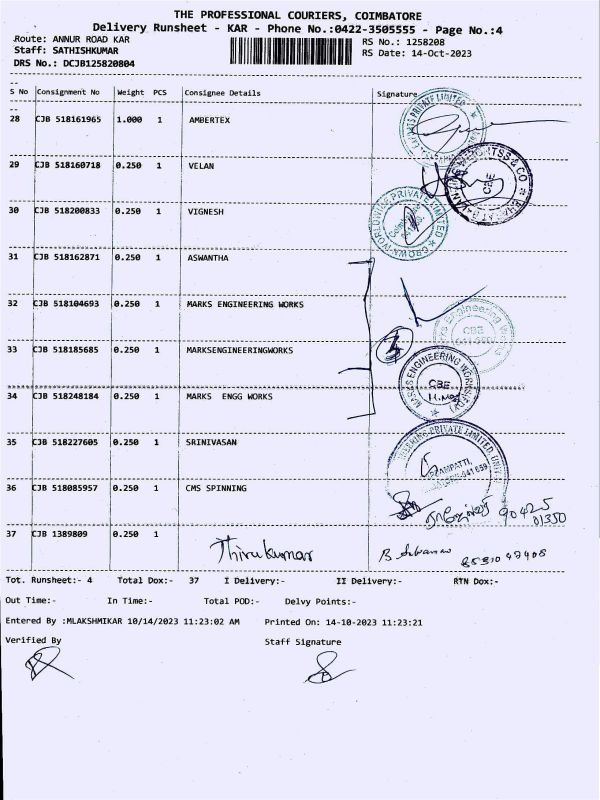 THE PROFESSIONAL COURIERS, COIMBATORE
Delivery Runsheet - KAR - Phone No.:0422-3505555 - Page No.:4
Route: ANNUR ROAD KAR RS No.: 1258208
Staff: SATHISHKUMAR RS Date: 14-Oct-2023
DRS No.: DCJB125820804
S No Consignment No Weight PCS Consignee Details Signature
28 CJB 518161965 1.000 1 AMBERTEX
29 CJB 518160718 0.250 1 VELAN
30 CJB 518200833 0.250 1 VIGNESH
CROWN WORLDWIDE PRIVATE LIMITED
31 CJB 518162871 0.250 1 ASWANTHA
32 CJB 518104693 0.250 1 MARKS ENGINEERING WORKS
CBE
33 CJB 518185685 0.250 1 MARKSENGINEERINGWORKS
MARKS ENGINEERING WORKS
CBE
34 CJB 518248184 0.250 1 MARKS ENGG WORKS
35 CJB 518227605 0.250 1 SRINIVASAN
36 CJB 518085957 0.250 1 CMS SPINNING
90425
01350
37 CJB 1389809 0.250 1
Thirukumar
Tot. Runsheet:- 4 Total Dox:- 37 I Delivery:- II Delivery:- RTN Dox:-
Out Time:- In Time:- Total POD:- Delvy Points:-
Entered By :MLAKSHMIKAR 10/14/2023 11:23:02 AM Printed On: 14-10-2023 11:23:21
Verified By Staff Signature